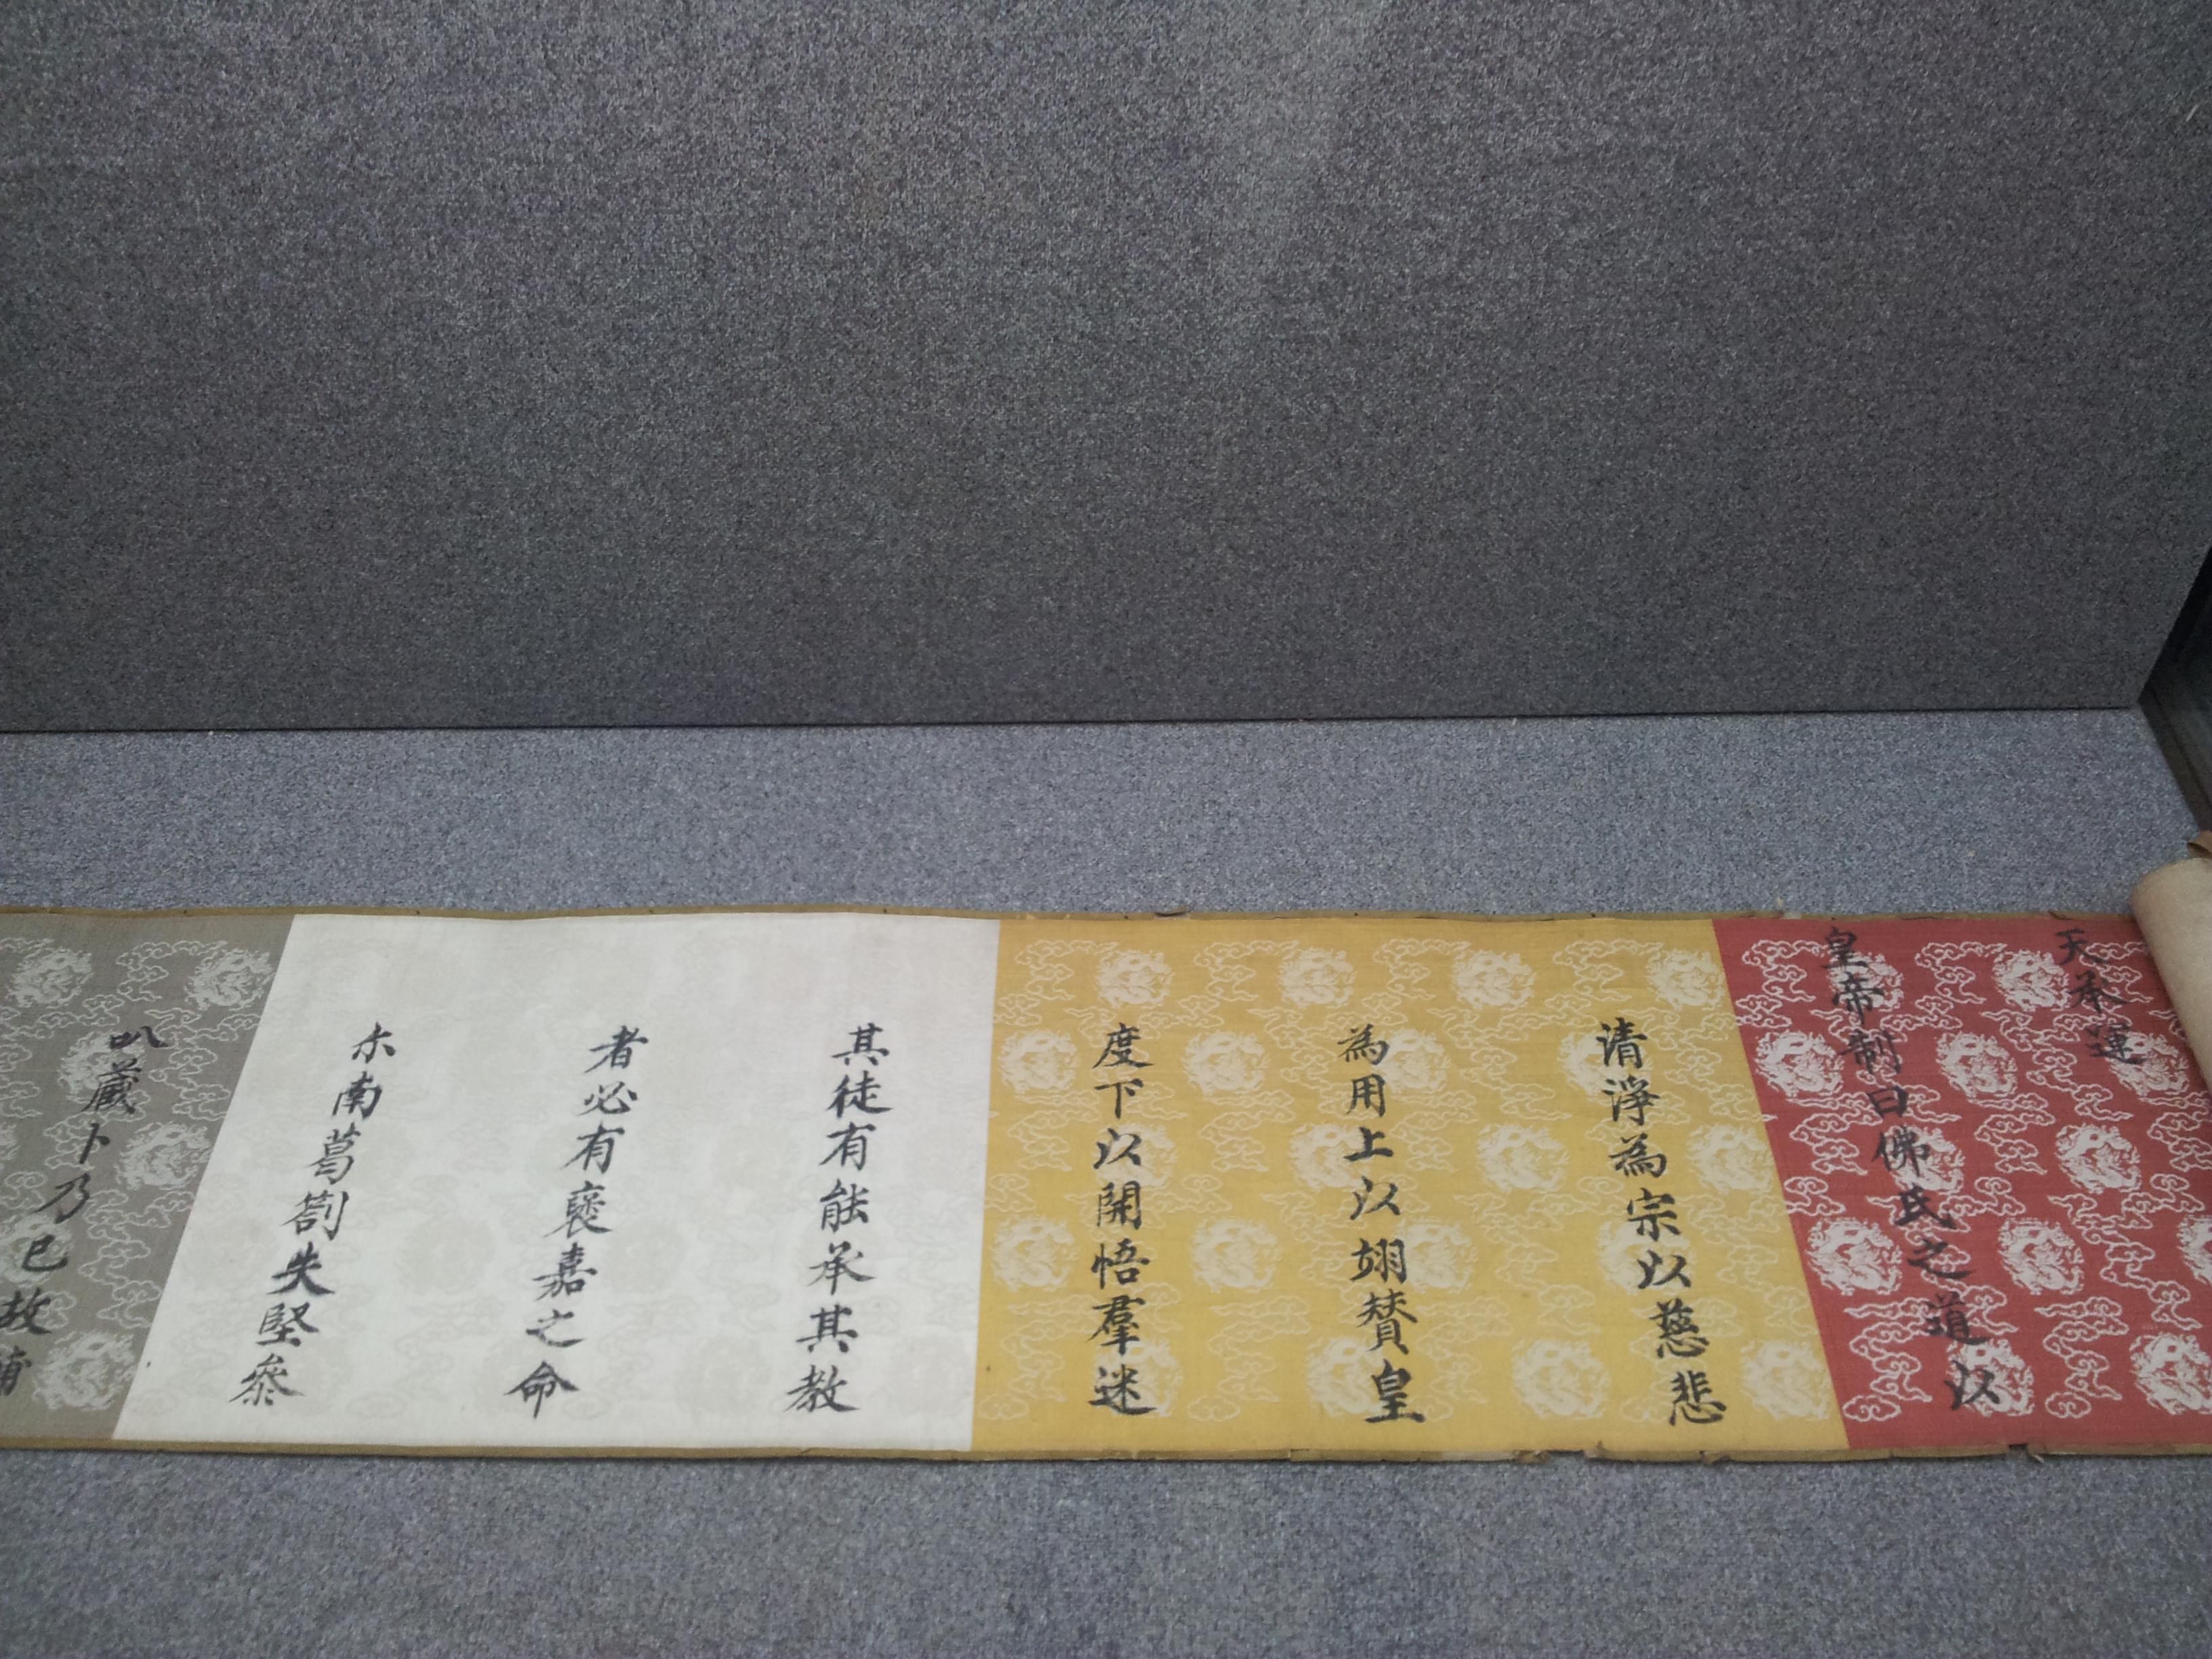 天承運
皇帝制曰佛氏之道以
清淨為宗以慈悲
為用上以翊賛皇
度下以開悟羣迷
其徒有能承其教
者必有褒嘉之命
尔南葛劄失堅叅
叭藏卜乃已故